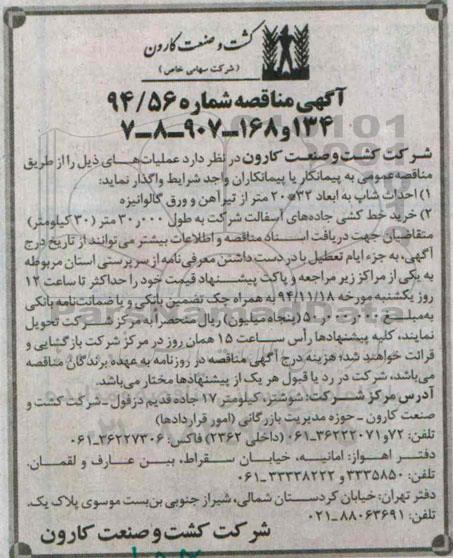 کشت و صنعت کارون
(شرکت سهامی خاص)
آگهی مناقصه شماره ۹۴/۵۶
۱۳۴ و ۱۶۸-۹۰۷-۸-۷
شرکت کشت و صنعت کارون در نظر دارد عملیات‌های ذیل را از طریق
مناقصه عمومی به پیمانکار یا پیمانکاران واجد شرایط واگذار نماید:
۱) احداث شاپ به ابعاد ۳۲*۲۰ متر از تیرآهن و ورق گالوانیزه
۲) خرید خط کشی جاده‌های آسفالت شرکت به طول ۳۰٫۰۰۰ متر (۳۰ کیلومتر)
متقاضیان جهت دریافت اسناد مناقصه و اطلاعات بیشتر می‌توانند از تاریخ درج
آگهی، به جزء ایام تعطیل با در دست داشتن معرفی‌نامه از سرپرستی استان مربوطه
به یکی از مراکز زیر مراجعه و پاکت پیشنهاد قیمت خود را حداکثر تا ساعت ۱۲
روز یکشنبه مورخه ۹۴/۱۱/۱۸ به همراه چک تضمین بانکی و یا ضمانت‌نامه بانکی
به مبلغ ۵۰٫۰۰۰٫۰۰۰ (پنجاه میلیون) ریال منحصرا به مرکز شرکت تحویل
نمایند، کلیه پیشنهادها رأس ساعت ۱۵ همان روز در مرکز شرکت بازگشایی و
قرائت خواهند شد؛ هزینه درج آگهی مناقصه در روزنامه به عهده برندگان مناقصه
می‌باشد، شرکت در رد یا قبول هر یک از پیشنهادها مختار می‌باشد.
آدرس مرکز شرکت: شوشتر، کیلومتر ۱۷ جاده قدیم دزفول - شرکت کشت و
صنعت کارون - حوزه مدیریت بازرگانی (امور قراردادها)
تلفن: ۷۲ و ۳۶۲۲۲۰۷۱-۰۶۱ (داخلی ۲۳۶۲) فاکس: ۳۶۲۲۷۳۰۶-۰۶۱
دفتر اهواز: امانیه، خیابان سقراط، بین عارف و لقمان.
تلفن: ۳۳۳۵۸۵۰ و ۳۳۳۳۸۲۲۲-۰۶۱
دفتر تهران: خیابان کردستان شمالی، شیراز جنوبی بن‌بست موسوی پلاک یک.
تلفن: ۸۸۰۶۳۶۹۱-۰۲۱
شرکت کشت و صنعت کارون
ParsNamadData